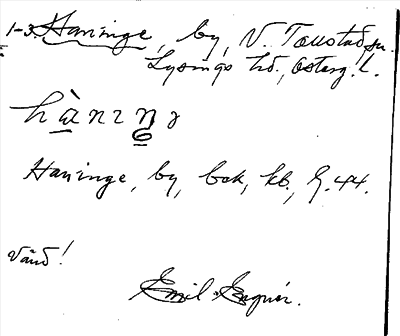 1-3. Haninge, by, V. Tollstad sn.
Lysings hd., Österg. l.
hànıŋə
Haninge, by, bok, kb., G. 44.
Vänd!
Emil